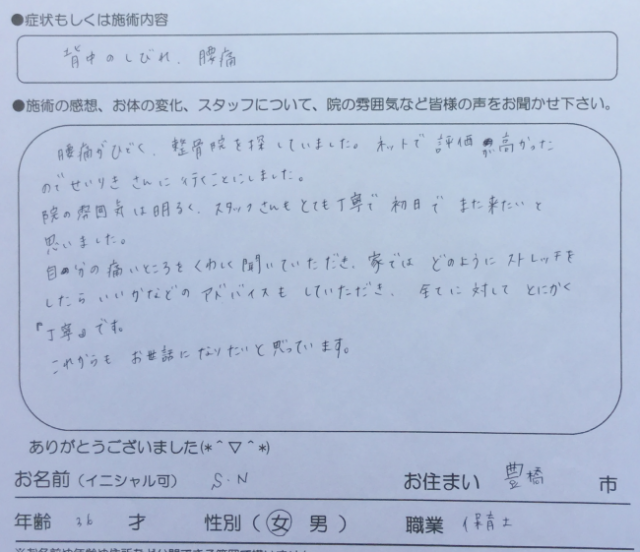 ●症状もしくは施術内容
背中のしびれ、腰痛
●施術の感想、お体の変化、スタッフについて、院の雰囲気など皆様の声をお聞かせ下さい。
腰痛がひどく、整骨院を探していました。ネットで評価が高かった
のでせいりきさんに行くことにしました。
院の雰囲気は明るく、スタッフさんもとても丁寧で初日でまた来たいと
思いました。
自分の痛いところをくわしく聞いていただき、家ではどのようにストレッチを
したらいいかなどのアドバイスもしていただき、全てに対してとにかく
『丁寧』です。
これからもお世話になりたいと思っています。
ありがとうございました(*^▽^*)
お名前(イニシャル可) S・N お住まい 豊橋 市
年齢 36 才 性別(女 男) 職業 保育士